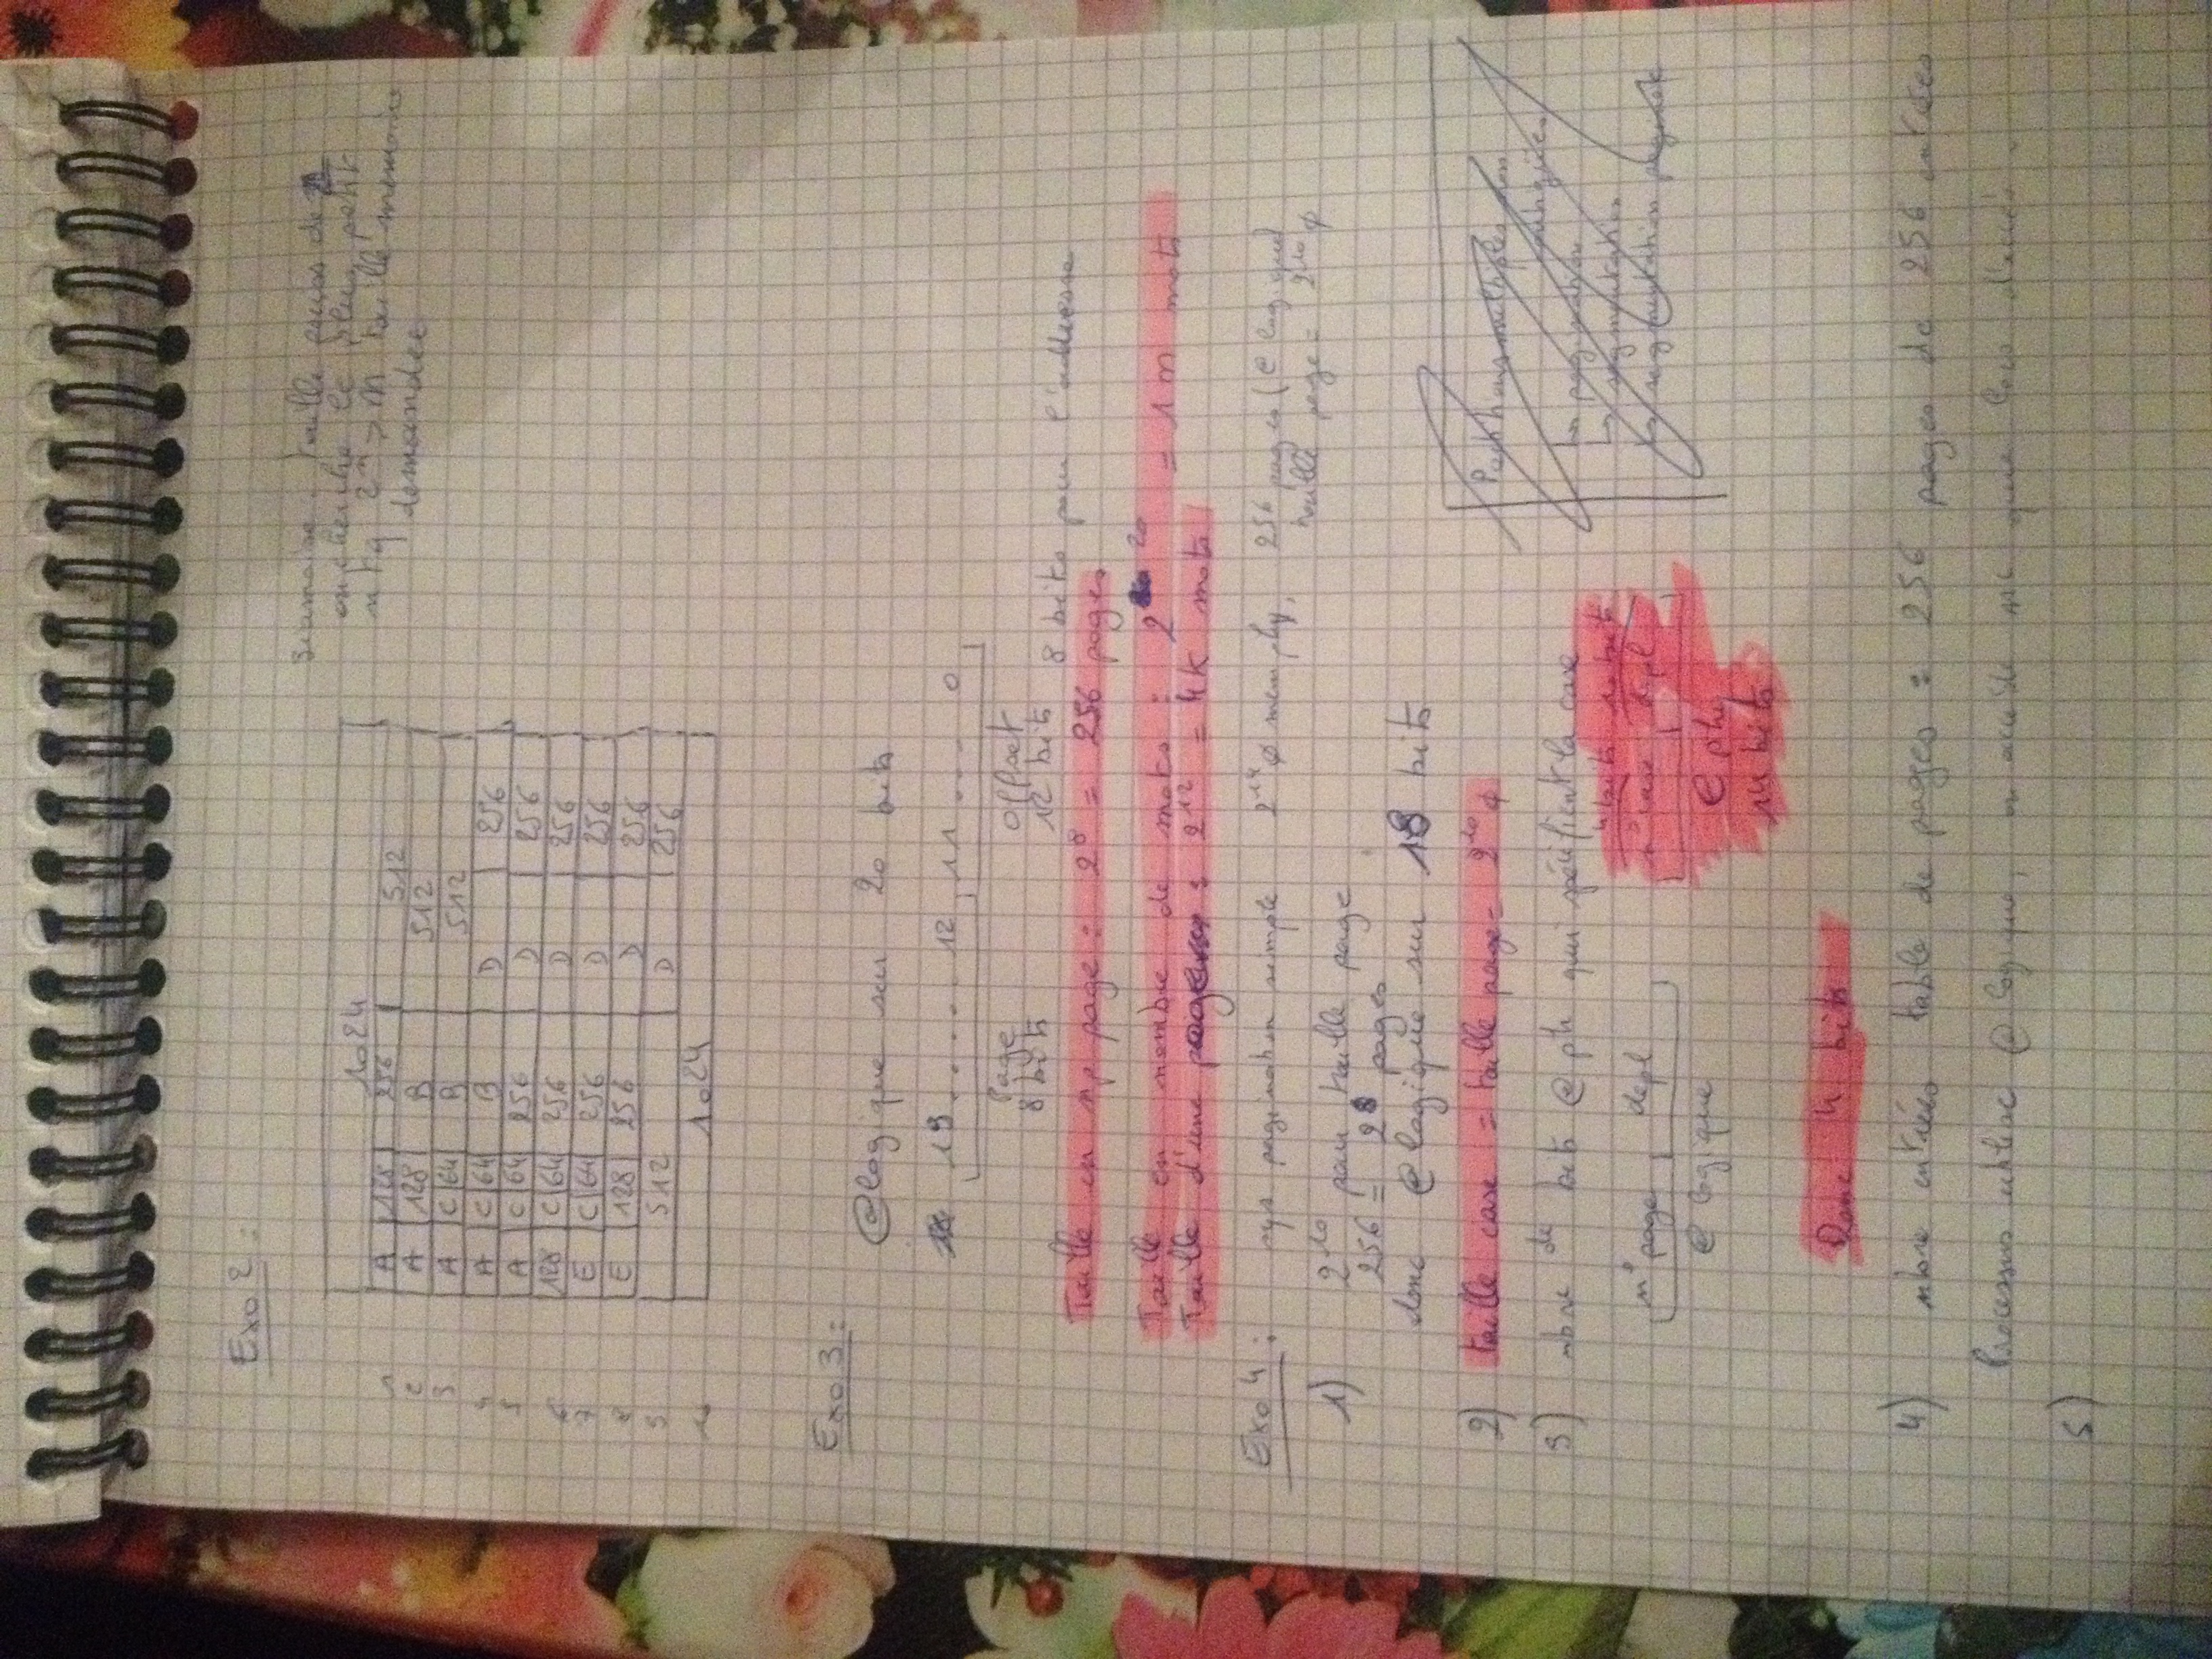 Exo 2 :
Siamoise : taille puiss de 2
on cherche le plus petit
n tq 2^n > m taille mémoire
demandée
1024
1 A 128 256 512
2 A 128 B 512
3 A C 64 B 512
4 A C 64 B D 256
5 A C 64 256 D 256
6 128 C 64 256 D 256
7 E C 64 256 D 256
8 E 128 256 D 256
9 512 D 256
1024
Exo 3 :
@logique sur 20 bits
19 ...... 12 11 .... 0
Page offset
8 bits 12 bits
8 bits pour l'adresse
Taille en np page = 2^8 = 256 pages
Taille en nombre de mots : 2^20 = 1 M mots
Taille d'une page : 2^12 = 4K mots
Exo 4 : sys pagination simple 2^14 ø mem phy, 256 pages (@ logique)
taille page = 2^10 ø
1) 2^10 pour taille page
256 = 2^8 pages
donc @logique sur 18 bits
2) taille case = taille page = 2^10 ø
3) nbre de bits @ ph qui spécifient la case
4 bits 10 bits
n° page depl n° case depl
@ logique @ phy
14 bits
Partitions multiples non
contigües
↳ pagination
↳ segmentation
↳ segmentation paginée
Donc 4 bits
4) nbre entrées table de pages = 256 pages de 256 entrées
Processus utilise @ logique, on accède que lors
5)